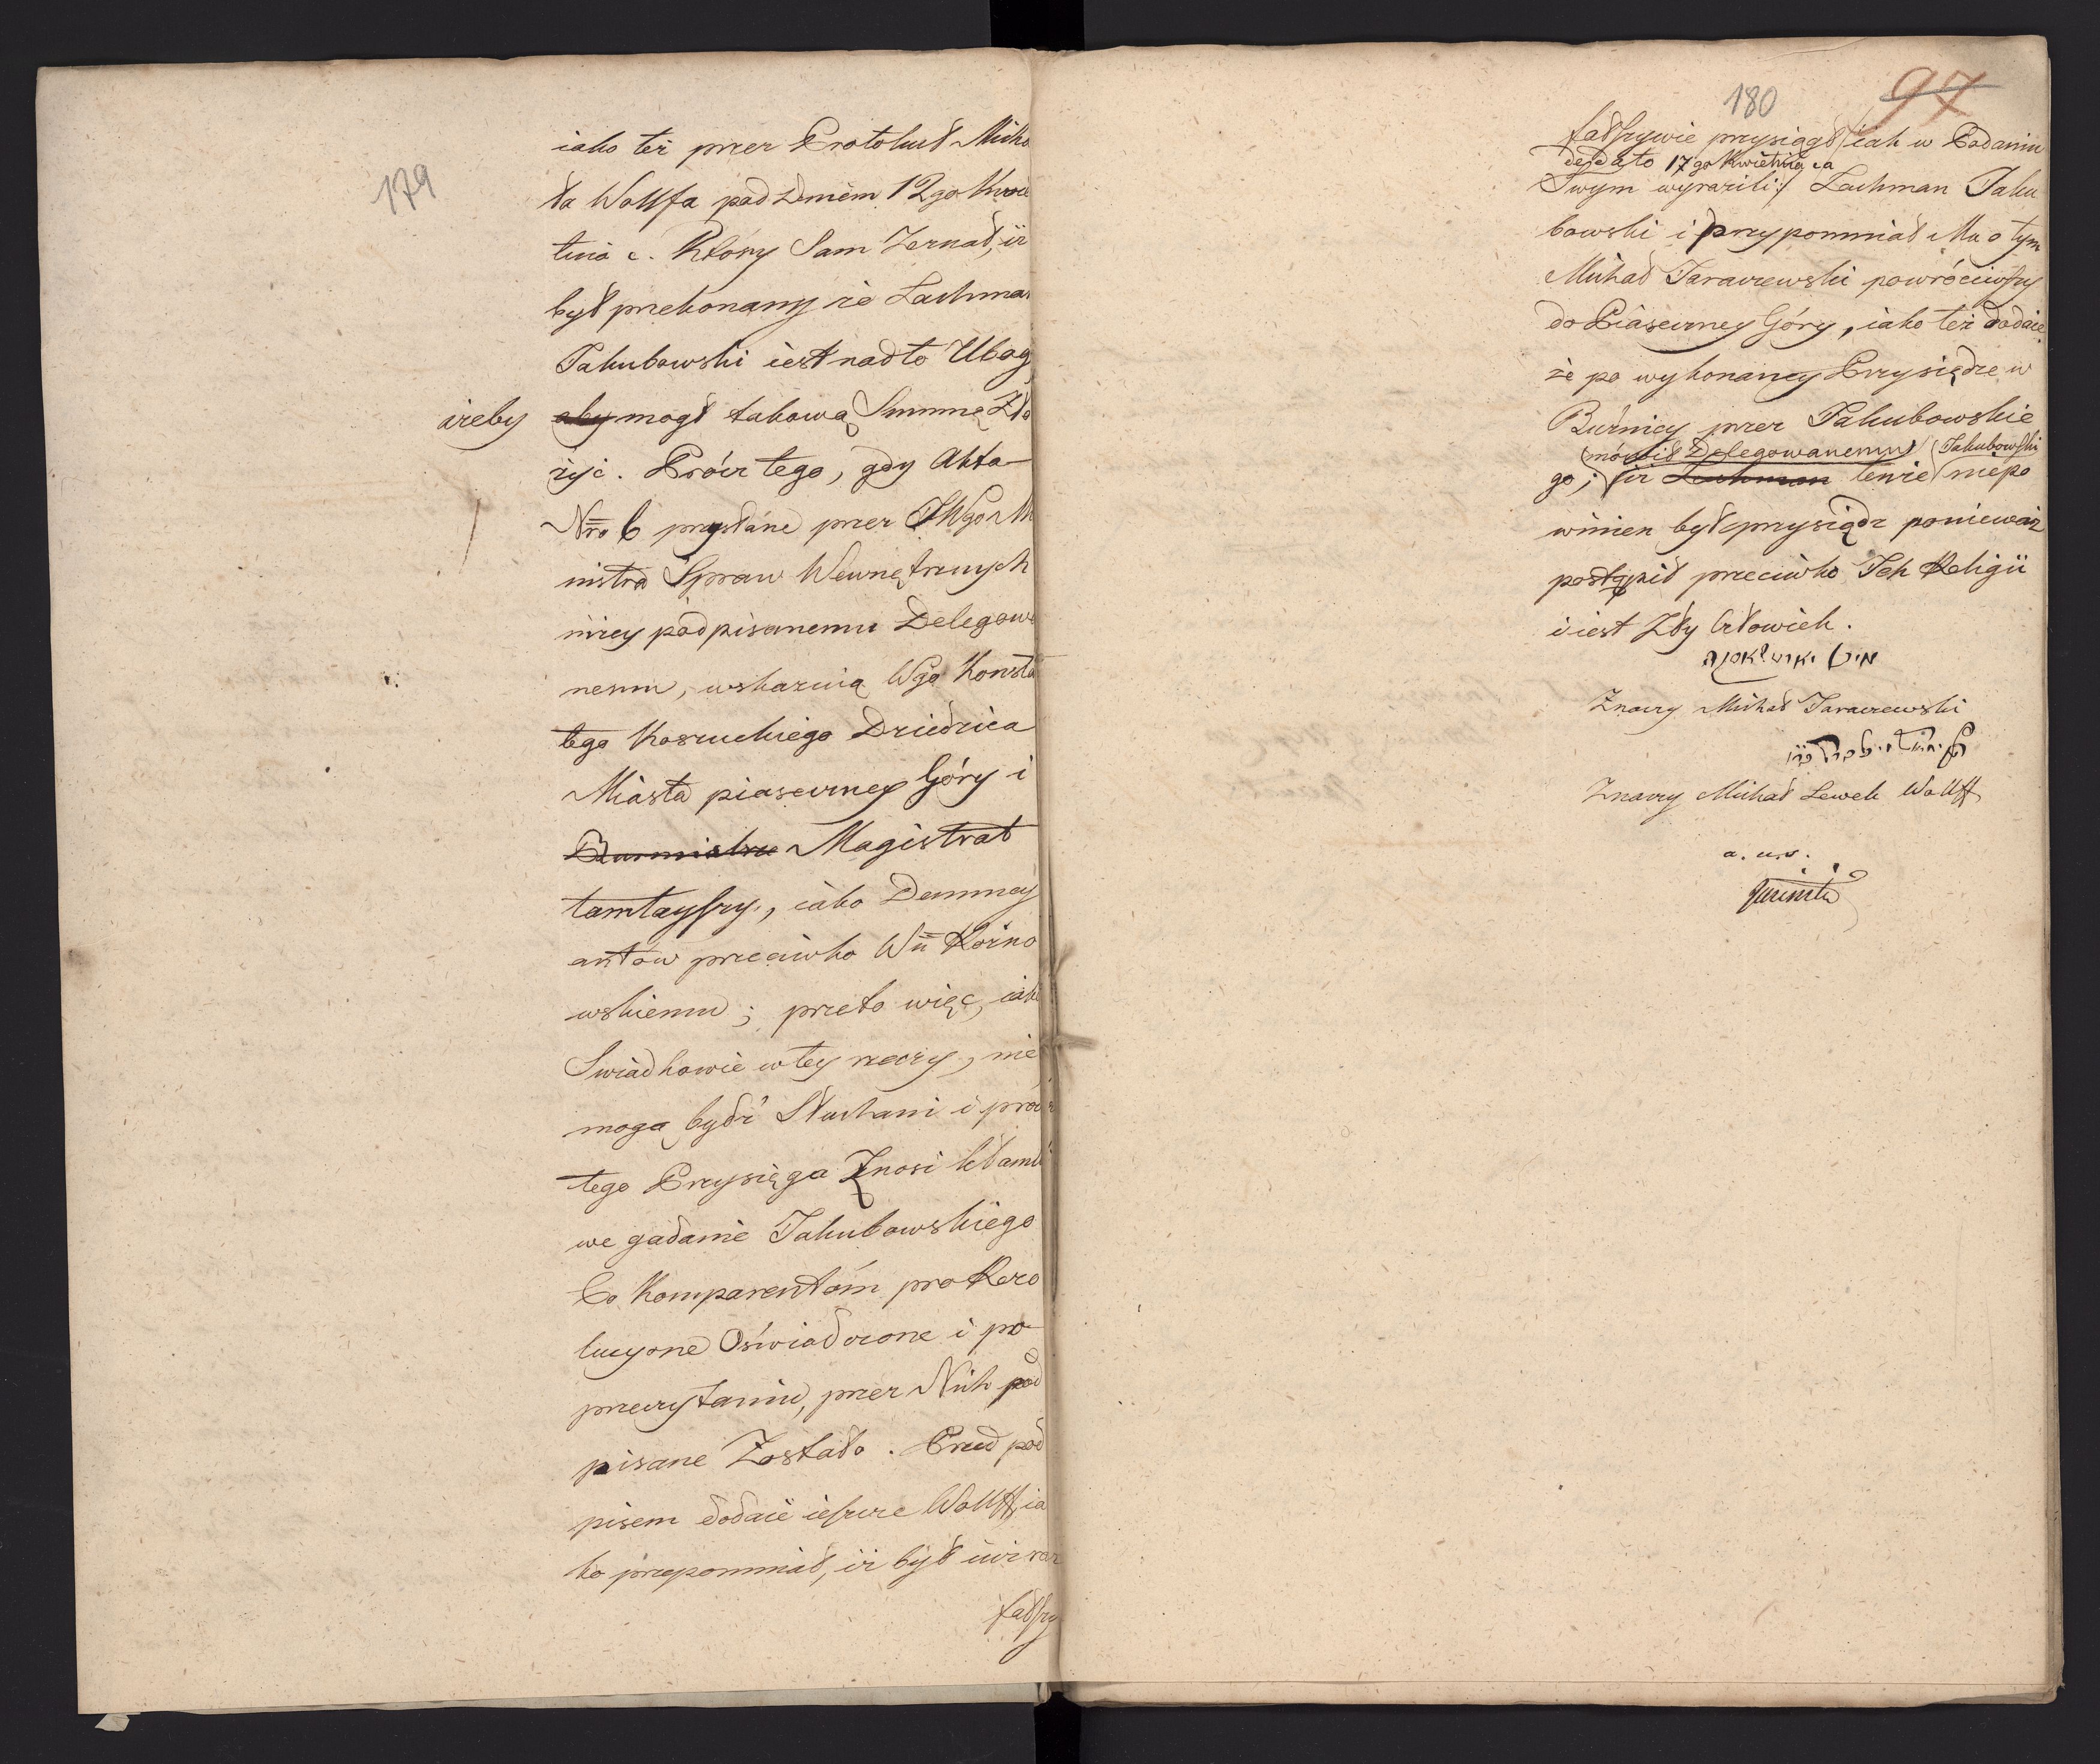 179
iako też przez Protokuł Micha
ła Wolffa pod Dniem 12go Kwie
tnia c. Który Sam Zeznał, iż
był przekonany że Lachman
Jakubowski iest nadto Ubog
ażeby aby mogł takową Summę Zło
żyć. Prócz tego, gdy Akta
Nro 6 przysłane przez JWgo Mi
nistra Spraw Wewnętrznych
niżey podpisanemu Delegowa
nemu, wskazuią Wgo Konsta
tego Koszuckiego Dziedzica
Miasta piaseczney Góry i
Burmistrza Magistrat
tamtayszy, iako Denuncy
antów przeciwko Wu Rożno
wskiemu; przeto więc, iako
Swiadkowie w tey rzeczy, nie
mogą bydź Słuchani i procz
tego Przysięga Znosi kłamli
we gadanie Jakubowskiego
Co Komparentóm pro Rezo
lucyone Oświadczone i po
przeczytaniu, przez Nich pod
pisane Zostało. Przed pod
pisem dodaie ieszcze Wolff, ia
ko przepomniał, iż był iuż raz
fałszy
180
97
fałszywie przysiągł /: iak w Podaniu
de dato 17go Kwietnia ca
Swym wyraził :/ Lachman Jaku
bowski i przypomniał Mu o tym
Michał Taraczewski powróciwszy
do Piaseczney Góry, iako też dodaie
że po wykonaney Przysiędze w
Bużnicy przez Jakubowskie
mówił Delegowanemu Jakubowski
go; iż Lachman tenże niepo
winien był przysiądz ponieważ
postąpił przeciwko Jch Religii
i iest Zły Człowiek.
Znaczy Michał Taraczewski
Znaczy Michał Lewek Wolff
a. u. s.